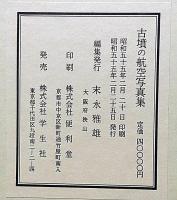 古墳の航空写真集
定価 四〇〇〇円
昭和五十五年二月二十日 印刷
昭和五十五年二月二十五日 発行
編集発行 末永雅雄
大阪府狭山
印刷 株式会社便利堂
京都市中京区新町通竹屋町南入
発売 株式会社学生社
東京都千代田区九段南二-二-四